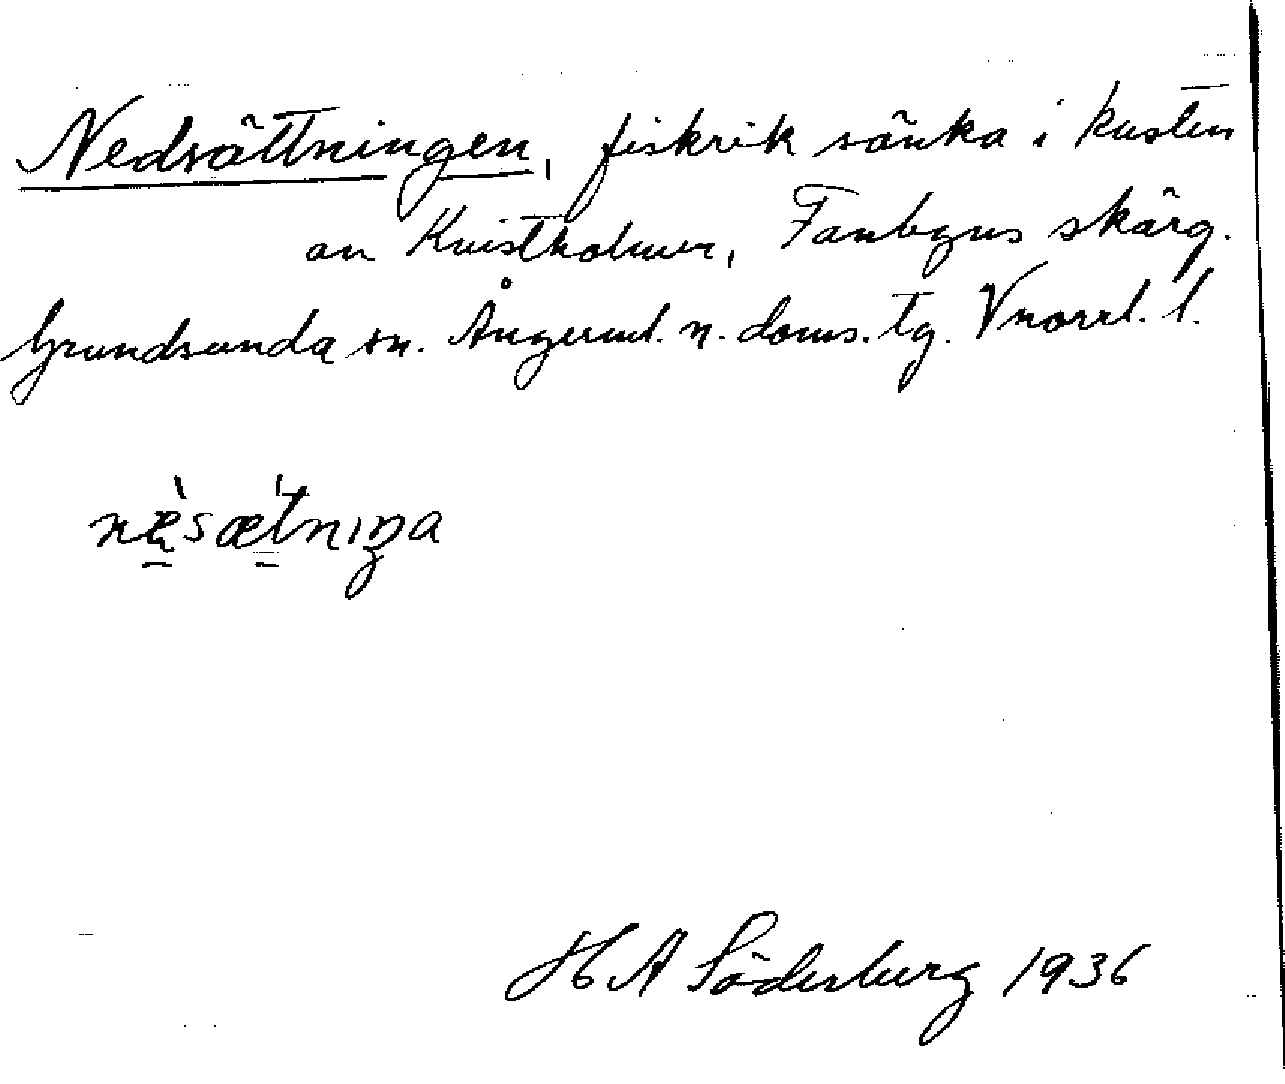 Nedsättningen, fiskrik sänka i kusten
av Kvistholmen, Fanbyns skärg.
Grundsunda sn. Ångerml. n. doms. tg. Vnorrl. l.
nèsætnıŋa
H A Söderberg 1936